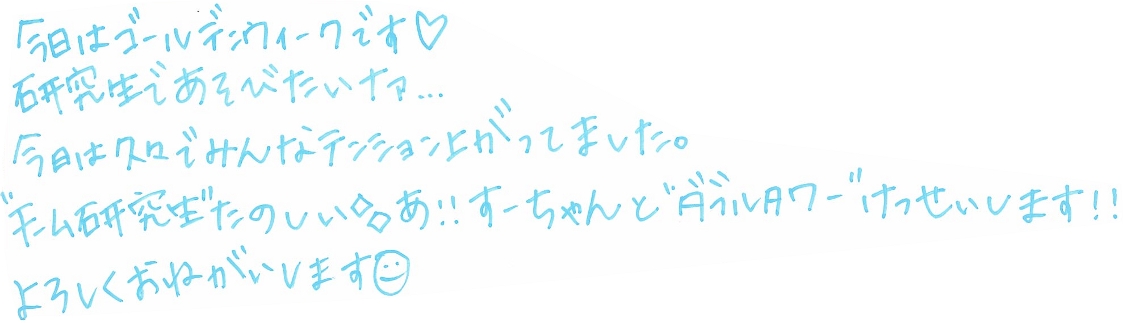 今日はゴールデンウィークです♡
研究生であそびたいナァ...
今日は久々でみんなテンション上がってました。
"チーム研究生"たのしい◇◇あ!!すーちゃんと"ダブルタワー"けっせいします!!
よろしくおねがいします☺